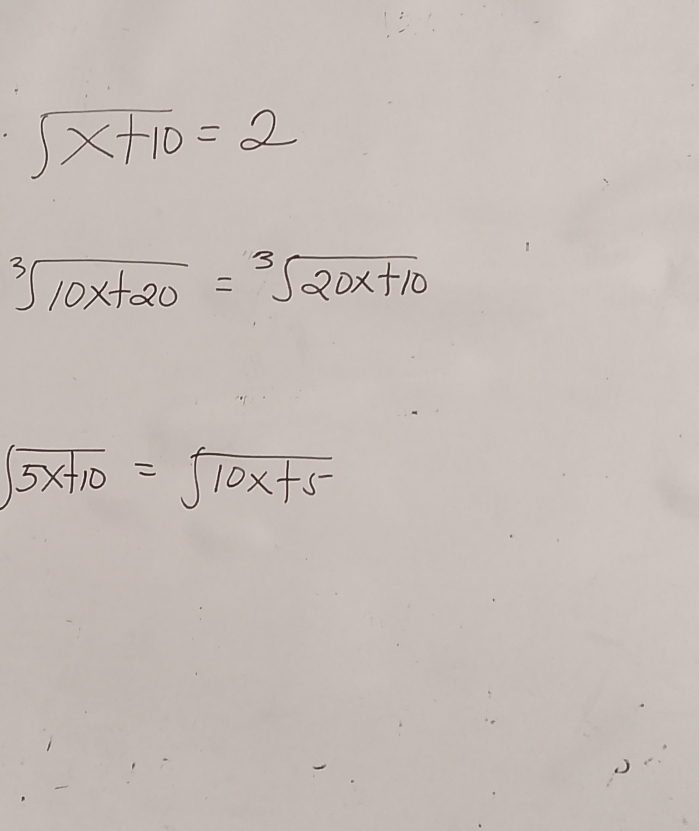 √x+10 = 2
³√10x+20 = ³√20x+10
√5x+10 = √10x+5